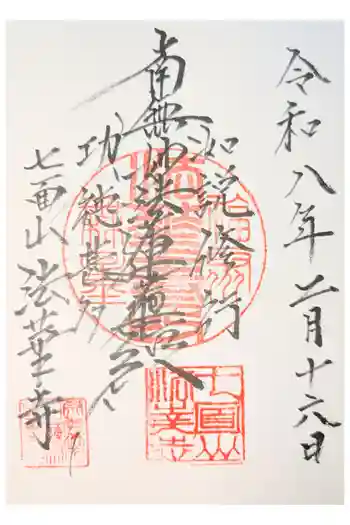 令和八年二月十六日
如説修行
南無妙法蓮華経
功徳甚多
七面山法華寺